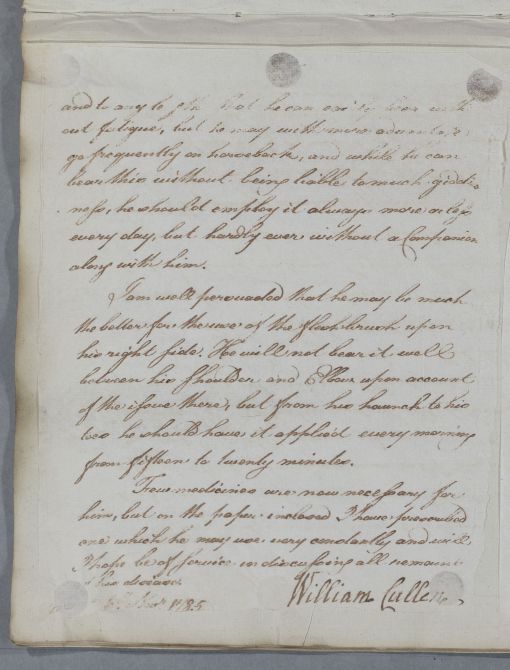 and to any length that he can easily bear with
out fatigue, but he may with more advantage
go frequently on horseback, and while he can
bear this without being liable to much giddi-
ness, he should employ it always more or less
every day, but hardly ever without a Companion
along with him.
I am well persuaded that he may be much
the better for the use of the flesh brush upon
his right side. He will not bear it well
between his Shoulder and Elbow upon account
of the issue there, but from his haunch to his
toes he should have it applied every morning
from fifteen to twenty minutes.
Few medicines are now necessary for
him, but on the paper inclosed I have prescribed
one which he may use very constantly and will
I hope be of service in discussing all remains
of his disease.
1785
William Cullen